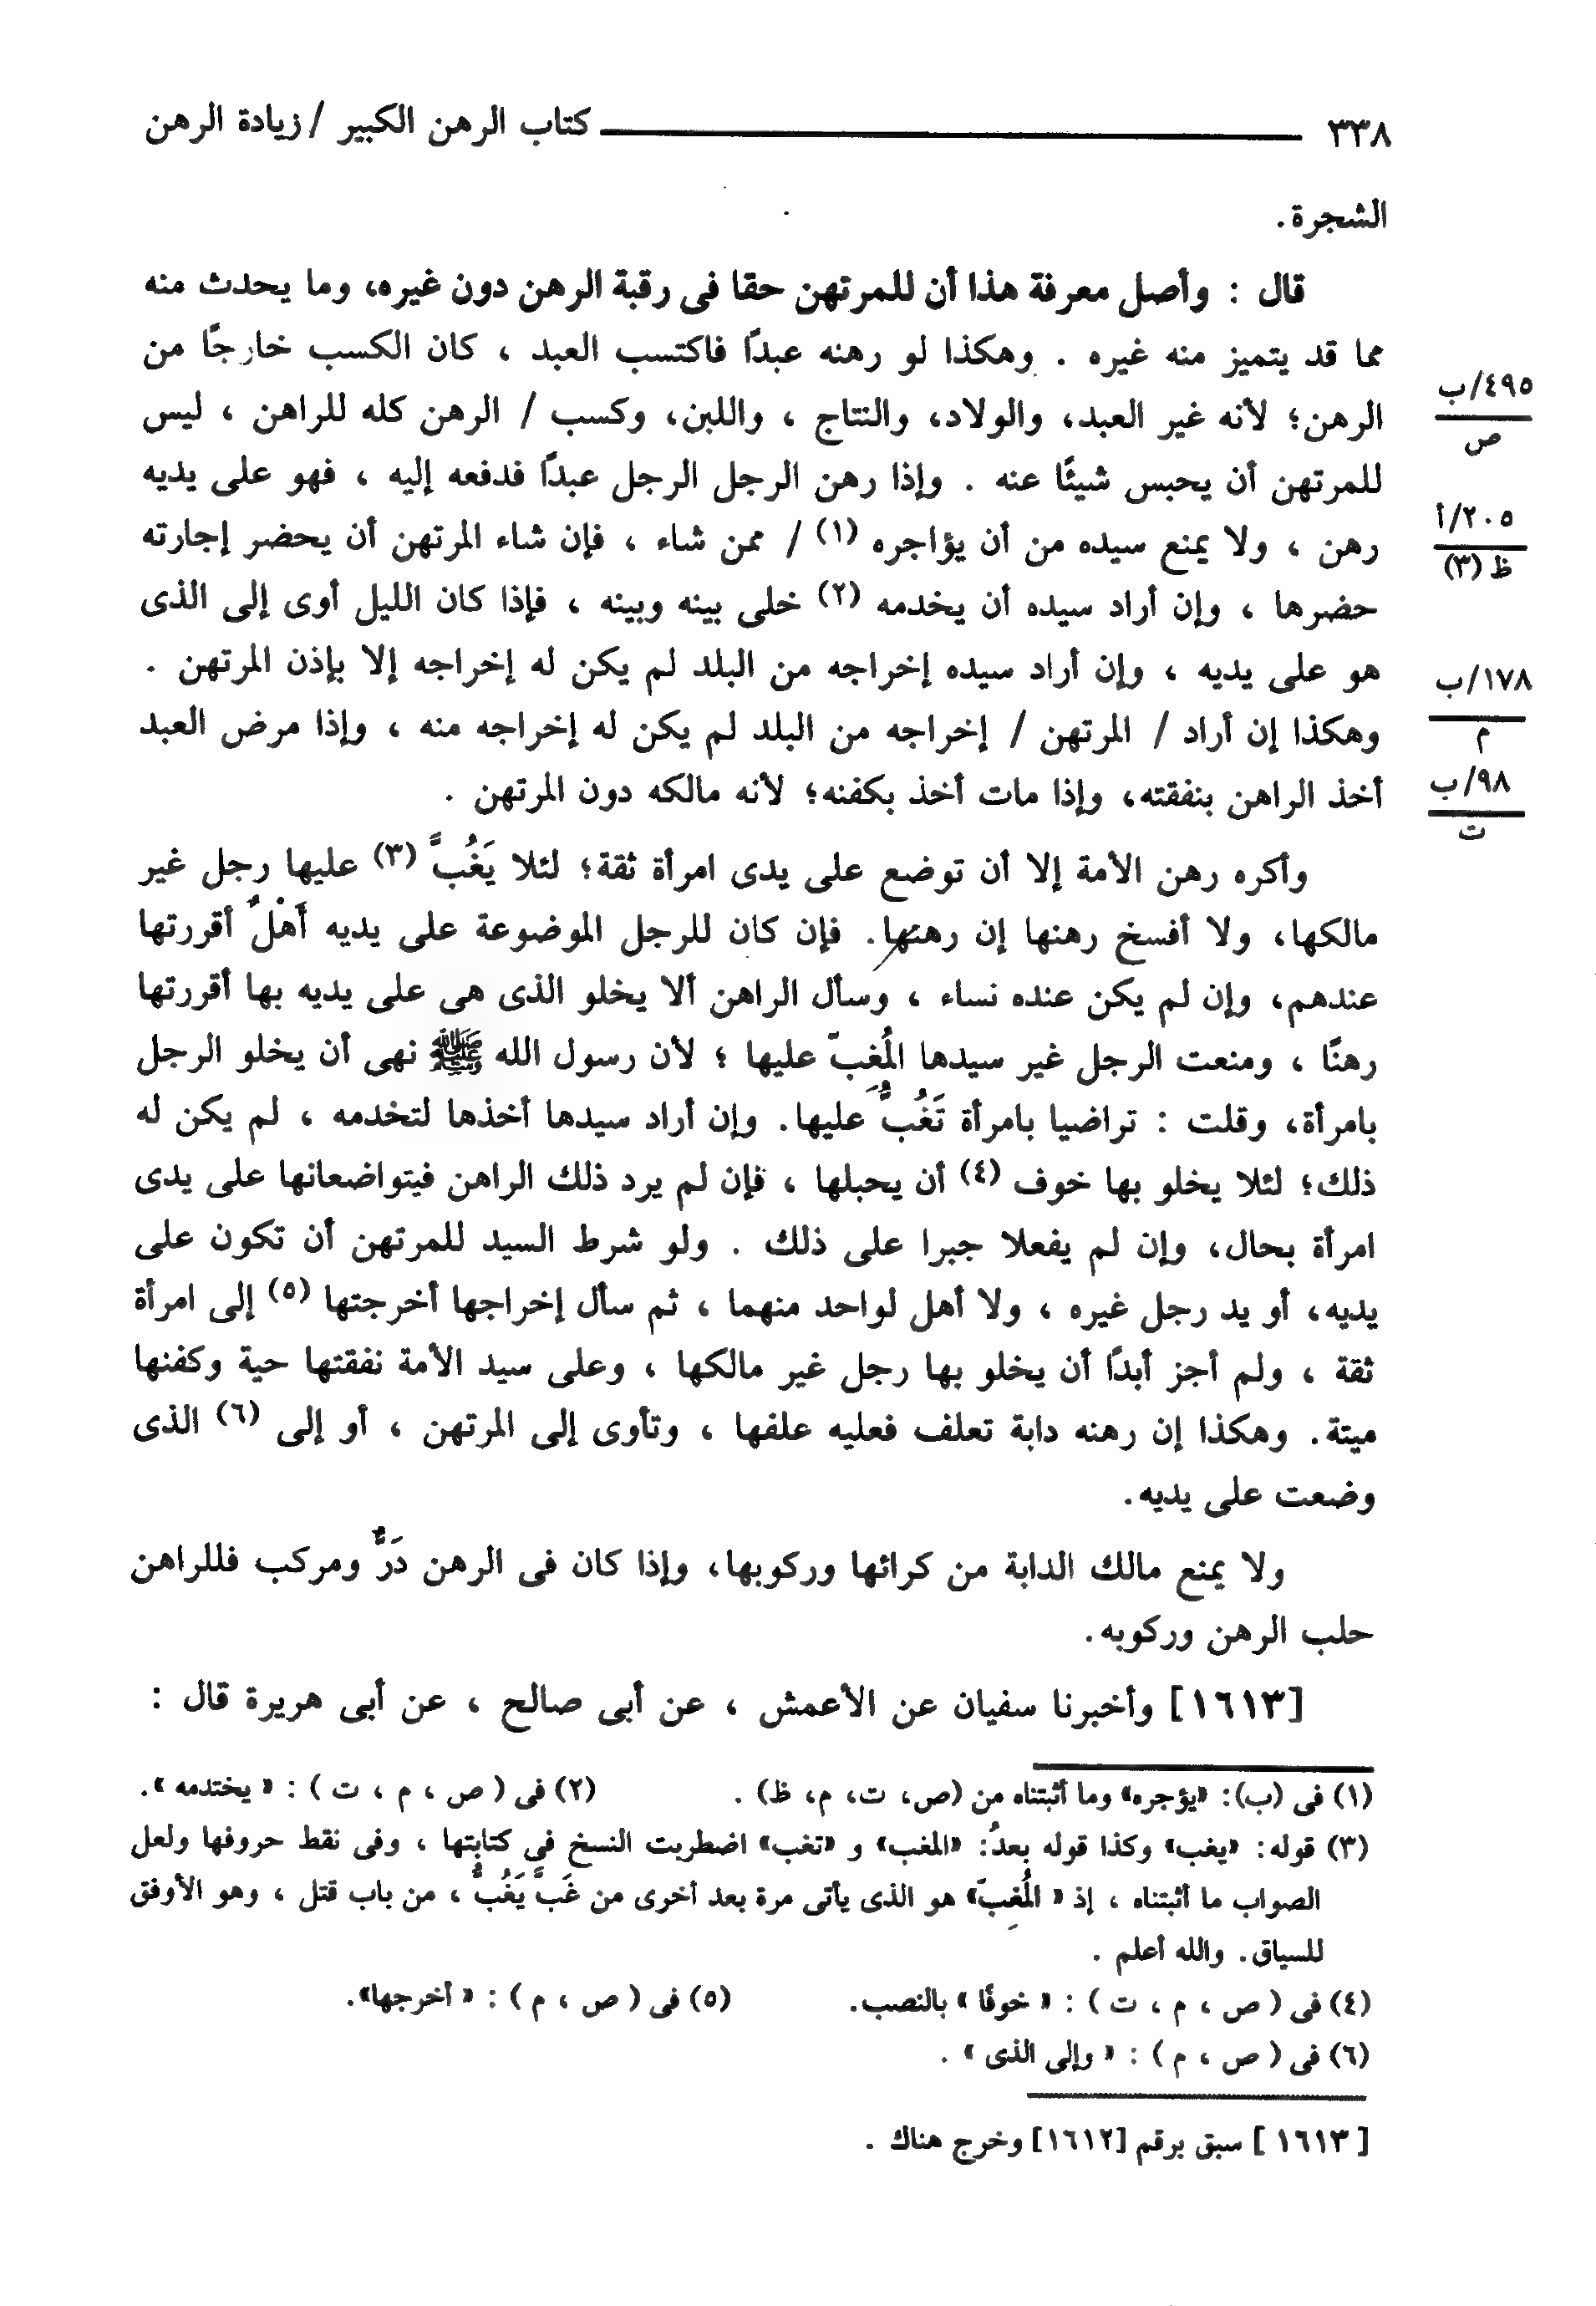 ٣٣٨ كتاب الرهن الكبير / زيادة الرهن
الشجرة.
قال : وأصل معرفة هذا أن للمرتهن حقا فى رقبة الرهن دون غيره، وما يحدث منه
مما قد يتميز منه غيره . وهكذا لو رهنه عبدًا فاكتسب العبد ، كان الكسب خارجًا من
الرهن؛ لأنه غير العبد، والولاد، والنتاج ، واللبن، وكسب / الرهن كله للراهن ، ليس
٤٩٥/ب
ص
للمرتهن أن يحبس شيئًا عنه . وإذا رهن الرجل الرجل عبدًا فدفعه إليه ، فهو على يديه
رهن ، ولا يمنع سيده من أن يؤاجره (١) / ممن شاء ، فإن شاء المرتهن أن يحضر إجارته
٢٠٥/أ
ظ (٣)
حضرها ، وإن أراد سيده أن يخدمه (٢) خلى بينه وبينه ، فإذا كان الليل أوى إلى الذى
هو على يديه ، وإن أراد سيده إخراجه من البلد لم يكن له إخراجه إلا بإذن المرتهن .
١٧٨/ب
م
وهكذا إن أراد / المرتهن / إخراجه من البلد لم يكن له إخراجه منه ، وإذا مرض العبد
٩٨/ب
ت
أخذ الراهن بنفقته، وإذا مات أخذ بكفنه؛ لأنه مالكه دون المرتهن .
وأكره رهن الأمة إلا أن توضع على يدى امرأة ثقة؛ لئلا يَغُبَّ (٣) عليها رجل غير
مالكها، ولا أفسخ رهنها إن رهنها. فإن كان للرجل الموضوعة على يديه أَهْلٌ أقررتها
عندهم، وإن لم يكن عنده نساء ، وسأل الراهن ألا يخلو الذى هى على يديه بها أقررتها
رهنًا ، ومنعت الرجل غير سيدها المُغِبّ عليها ؛ لأن رسول الله ﷺ نهى أن يخلو الرجل
بامرأة، وقلت : تراضيا بامرأة تَغُبُّ عليها. وإن أراد سيدها أخذها لتخدمه ، لم يكن له
ذلك؛ لئلا يخلو بها خوف (٤) أن يحبلها ، فإن لم يرد ذلك الراهن فيتواضعانها على يدى
امرأة بحال، وإن لم يفعلا جبرا على ذلك . ولو شرط السيد للمرتهن أن تكون على
يديه، أو يد رجل غيره ، ولا أهل لواحد منهما ، ثم سأل إخراجها أخرجتها (٥) إلى امرأة
ثقة ، ولم أجز أبدًا أن يخلو بها رجل غير مالكها ، وعلى سيد الأمة نفقتها حية وكفنها
ميتة. وهكذا إن رهنه دابة تعلف فعليه علفها ، وتأوى إلى المرتهن ، أو إلى (٦) الذى
وضعت على يديه.
ولا يمنع مالك الدابة من كرائها وركوبها، وإذا كان فى الرهن دَرٌّ ومركب فللراهن
حلب الرهن وركوبه.
[١٦١٣] وأخبرنا سفيان عن الأعمش ، عن أبى صالح ، عن أبى هريرة قال :
(١) فى (ب): «يؤجره» وما أثبتناه من (ص، ت، م، ظ) . (٢) فى ( ص ، م ، ت ) : « يختدمه ».
(٣) قوله: «يغب» وكذا قوله بعدُ: «المغب» و «تغب» اضطربت النسخ فى كتابتها ، وفى نقط حروفها ولعل
الصواب ما أثبتناه ، إذ « المُغِبّ» هو الذى يأتى مرة بعد أخرى من غَبَّ يَغُبُّ ، من باب قتل ، وهو الأوفق
للسياق. والله أعلم .
(٤) فى ( ص ، م ، ت ) : « خوفًا » بالنصب. (٥) فى ( ص ، م ) : « أخرجها».
(٦) فى ( ص ، م ) : « وإلى الذى » .
[ ١٦١٣ ] سبق برقم [١٦١٢] وخرج هناك .